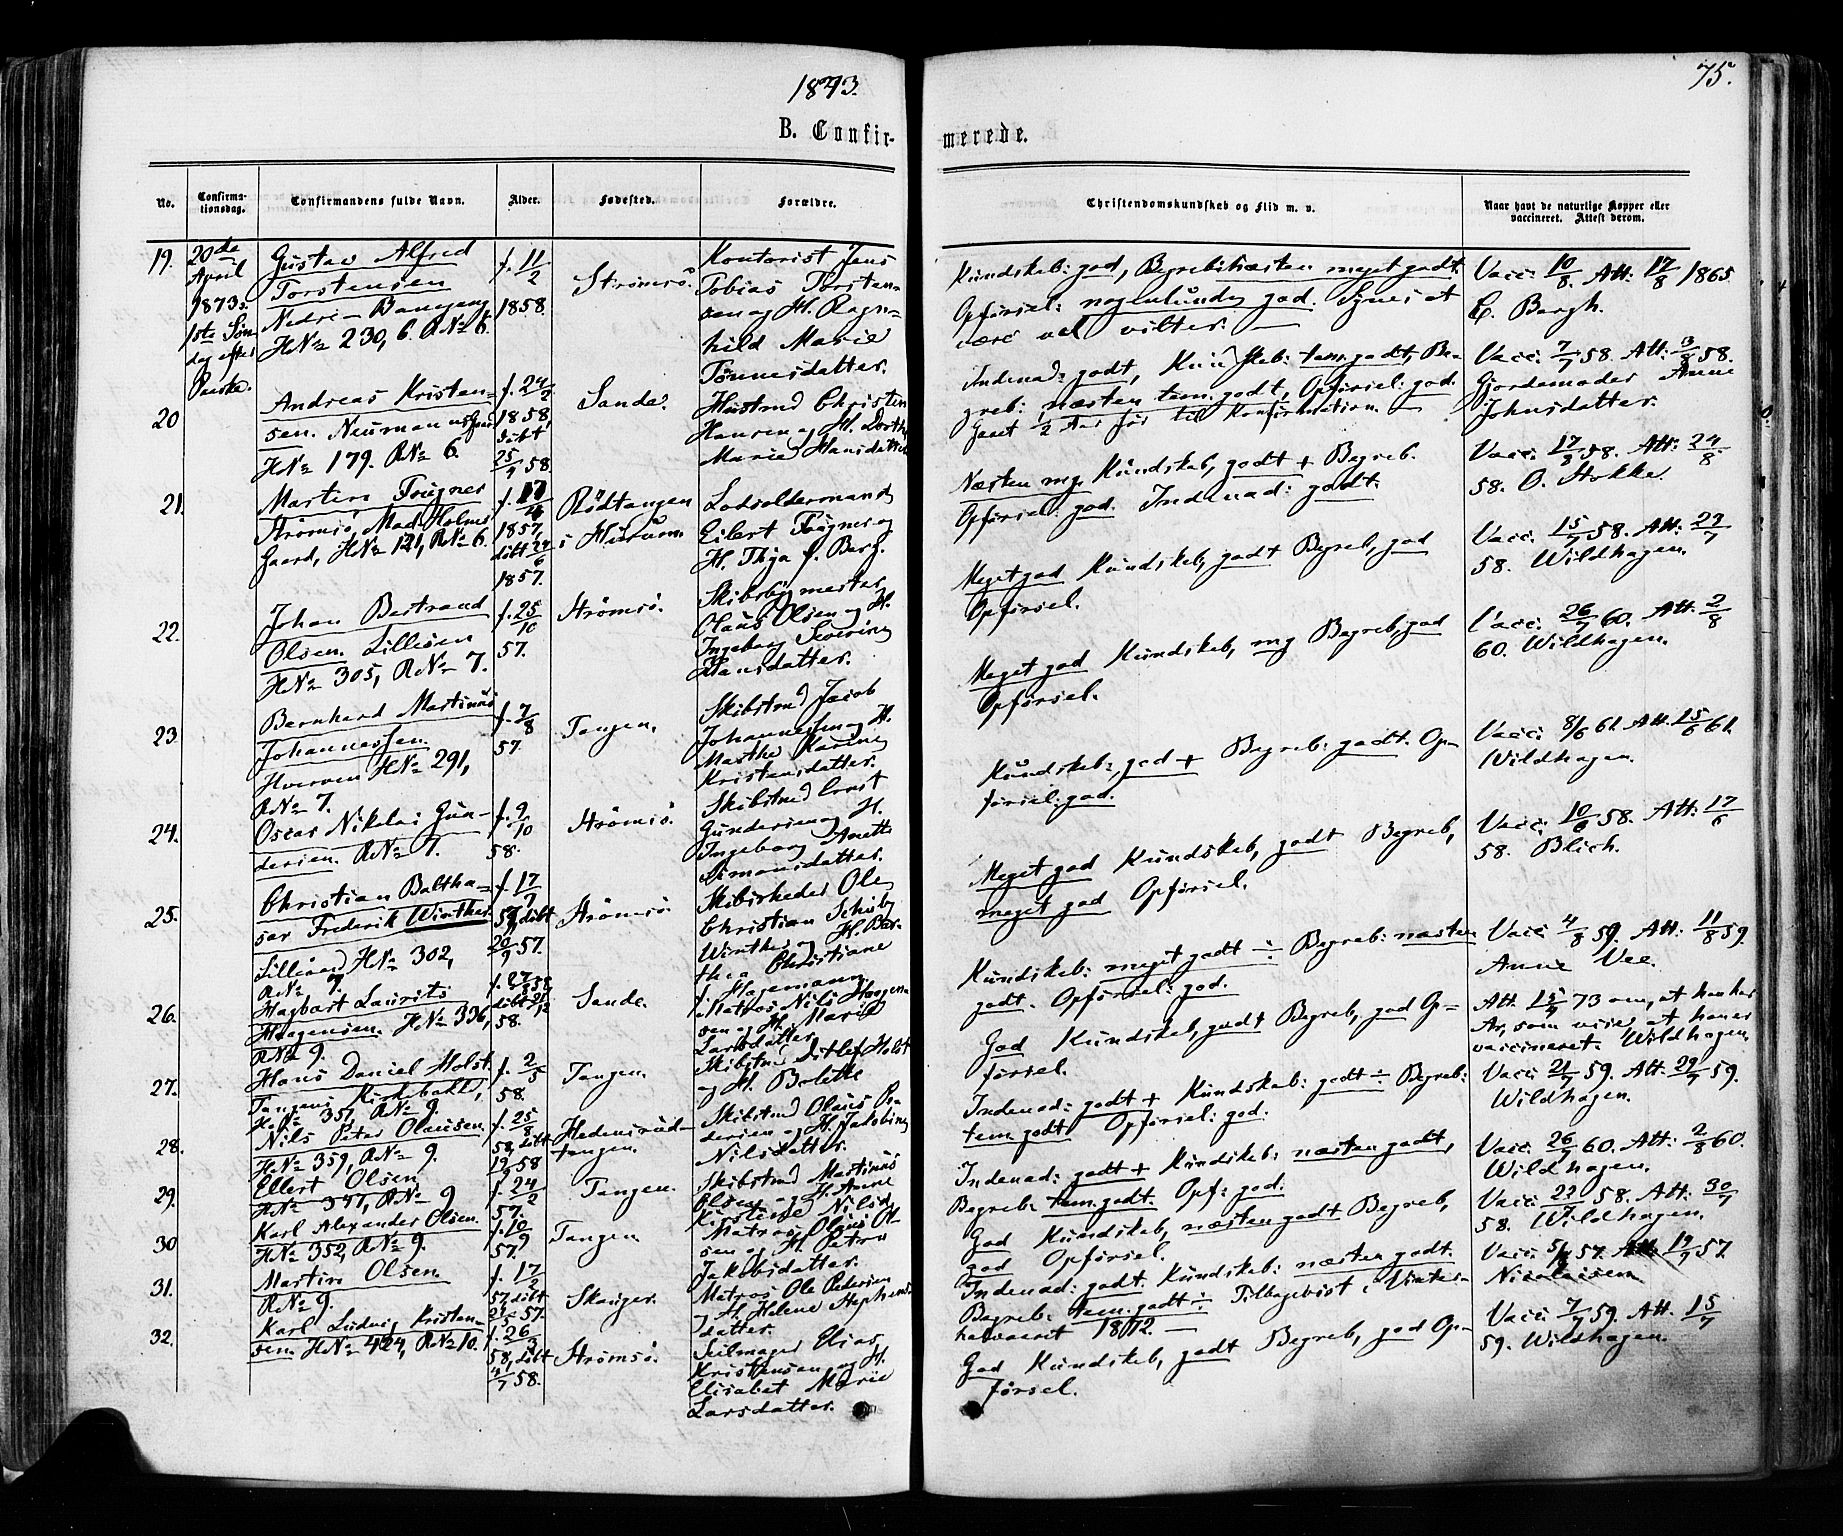 1873.
75.
B. Confir-
merede.
No.
Confirma-
tionsdag.
Confirmandens fulde Navn.
Alder.
Fødested.
Forældre.
Christendomskundskab og Flid m. v.
Naar havt de naturlige Kopper eller
vaccineret. Attest derom.
19.
20de
April
1873.
1ste Søn-
dag efter
Paaske.
Gustav Alfred
Torstensen
Nedre-
H№ 230, 6. R№ 6.
f. 11/2
1858.
Strømsø.
Kontorist Jens
Tobias Torsten-
sen og H. Ragn-
hild Marie
Tønnesdatter.
Kundskab: god, Begreb: næsten meget godt.
Opførsel: nogenlunde god. Synes at
være vel
Vacc. 10/8. Att: 17/8 1865
C. Bergh.
20
Andreas Kristen-
sen.
H№ 179. R№ 6.
f. 24/2
1858,
døbt
25/4 58.
Sande.
Christen
Hansen og H. Dorthe
Marie Hansdatter
Indenad: godt, Kundskab: tem. godt, Be-
greb: næsten tem. godt, Opførsel: god.
Gaaet 1/2 Aar før til Konfirmation.
Vacc. 7/7 58. Att: 13/8 58.
Gjordemoder Anne
Johnsdatter.
21.
Martin Fugner
Strømsø, Mad. Holms
Gaard, H№ 121, R№ 6.
f. 17/
1857,
døbt 24/6
1857.
Rødtangen
i Hurum.
Lodsoldermand
Eilert Fugner og
H. Thea f. Berg.
Næsten mg. Kundskab, godt + Begreb.
Opførsel: god. Indenad: godt.
Vacc. 17/8 58. Att: 24/8.
58. O. Stokke.
22.
Johan Bertrand
Olsen. Lillesen
H№ 305, R№ 7.
f. 25/10
57.
Strømsø.
Skibsbygmester
Olaus Olsen og H.
Ingeborg Severine
Hansdatter.
Meget god Kundskab, godt Begreb, god
Opførsel.
Vacc. 15/7 58. Att. 22/7
58. Wildhagen.
23.
Bernhard Martinus
Johannessen.
H№ 291,
R№ 7.
f. 7/8
57.
Tangen.
Skibstmd Jacob
Johannessen og H.
Marthe Karine
Kristensdatter.
Meget god Kundskab, mg Begreb, god
Opførsel.
Vacc. 26/7 60. Att. 2/8
60. Wildhagen.
24.
Oscar Nikolai Gun-
dersen. R№ 7.
f. 9/10
58.
Strømsø.
Skibstmd Ernst
Gundersen og H.
Ingeborg Anette
Simonsdatter.
Kundskab: god + Begreb: godt. Op-
førsel: god.
Vacc: 8/6 61. Att. 15/6 61.
Wildhagen.
25.
Christian Baltha-
sar Frederik Winther.
H№ 302,
R№ 7.
f. 17/7
57, døbt
20/9 57.
Strømsø.
Skibsreder Ole
Christian Schiby
Winther og H. Ber-
thea Christiane
f. Hagemann
Meget god Kundskab, godt Begreb,
meget god Opførsel.
Vacc: 10/6 58. Att: 17/6
58. Blich.
26.
Hagbart Laurits
Haagensen. H№ 336,
R№ 9.
58.
Sande.
Matros Nils Haagen-
sen og H. Marie
Larsdatter.
Kundskab: meget godt ÷ Begreb: næsten
godt. Opførsel: god.
Vacc 4/8 59. Att: 11/8 59.
Anne Vee.
27.
Hans Daniel Holst.
Tangens Kirkebakke,
H№ 357, R№ 9.
f. 2/5
58.
Tangen.
Skibstmd Ditlef Holst
og H. Bolette
God Kundskab, godt Begreb, god Op-
førsel.
Att. 15/4 73 om, at han har
Ar, som vise, at han er
vaccineret. Wildhagen.
28.
Nils Peter Olausen.
H№ 359, R№ 9.
f. 25/8
58, døbt
19/9 58
Hedensrud-
tangen.
Skibstmd Olaus Pe-
dersen og H. Jakobine
Nilsdatter.
Indenad: godt + Kundskab: godt ÷ Begreb:
tem. godt Opførsel: god.
Vacc: 21/7 59. Att. 29/7 59.
Wildhagen.
29.
Ellert Olsen.
H№ 347, R№ 9
f. 24/2
57.
Tangen.
Skibstmd Martinus
Olsen og H. Anne
Kirstine Nilsd.
Indenad: godt + Kundskab: næsten godt,
Begreb: tem. godt. Opf: god.
Vacc: 26/7 60. Att: 2/8 60.
Wildhagen.
30
Karl Alexander Olsen.
H№ 352, R№ 9.
f. 10/9
57.
Tangen.
Matros Olaus Ol-
sen og H. Petra
Jakobsdatter.
God Kundskab, næsten godt Begreb,
god Opførsel.
Vacc: 22/7 58. Att: 30/7
58. Wildhagen.
31.
Martin Olsen.
R№ 9.
f. 17/2
57, døbt
57.
Skauger.
Matros Ole Pedersen
H. Helene Stephens-
datter.
Indenad: godt. Kundskab: næsten godt.
Begreb: tem. godt ÷ Tilbagevist i Vinter-
halvaaret 1872.
Vacc. 57. Att. 19/7 57.
Nicolaisen
32.
Karl Ludvig Kristen-
sen. H№ 424, R№ 10.
f. 26/3
58, døbt
4/7 58.
Strømsø.
Seilmager Elias
Kristensen og H.
Elisabet Marie
Larsdatter.
God Kundskab, godt Begreb, god Op-
førsel.
Vacc: 7/7 59. Att. 15/7
59. Wildhagen.